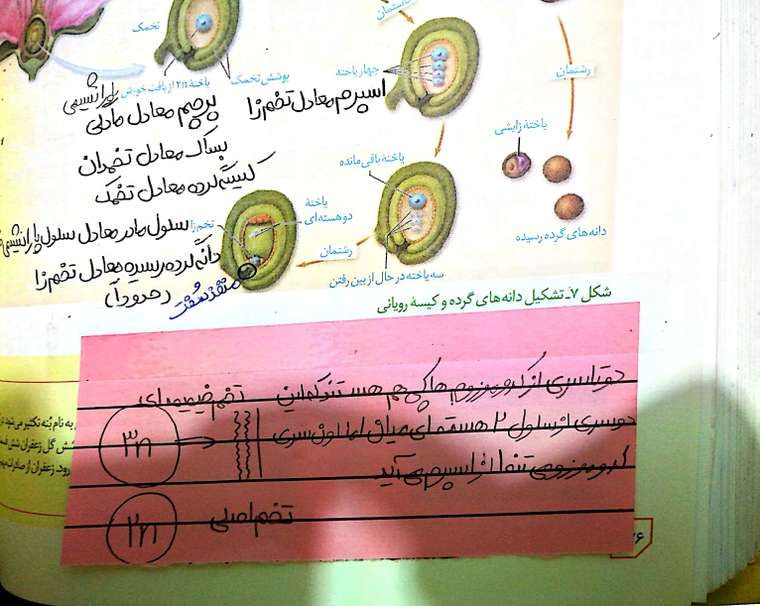 تخمک
یاختهٔ ۲n از بافت خورش
پوشش تخمک
پارانشیمی
پرچم معادل مادگی
بساک معادل تخمدان
کیسهٔ گرده معادل تخمک
سلول مادر معادل سلول پارانشیمی
دانهٔ گرده رسیده معادل تخم‌زا
(حدوداً)
منفذ سفت
کاستمان
چهار یاخته
اسپرم معادل تخم‌زا
یاختهٔ باقی‌مانده
سه یاخته در حال از بین رفتن
رشتمان
یاختهٔ
دو هسته‌ای
تخم‌زا
رشتمان
یاختهٔ زایشی
دانه‌های گرده رسیده
شکل ۷ـ تشکیل دانه‌های گرده و کیسهٔ رویانی
دوتا سری از کروموزوم‌ها کپی هم هستند که این
تخم ضمیمه‌ای
دوسری از سلول ۲ هسته‌ای میاد اما اون سری
۳n
کروموزومی تنها از اسپرم می‌آید
تخم اصلی
۲n